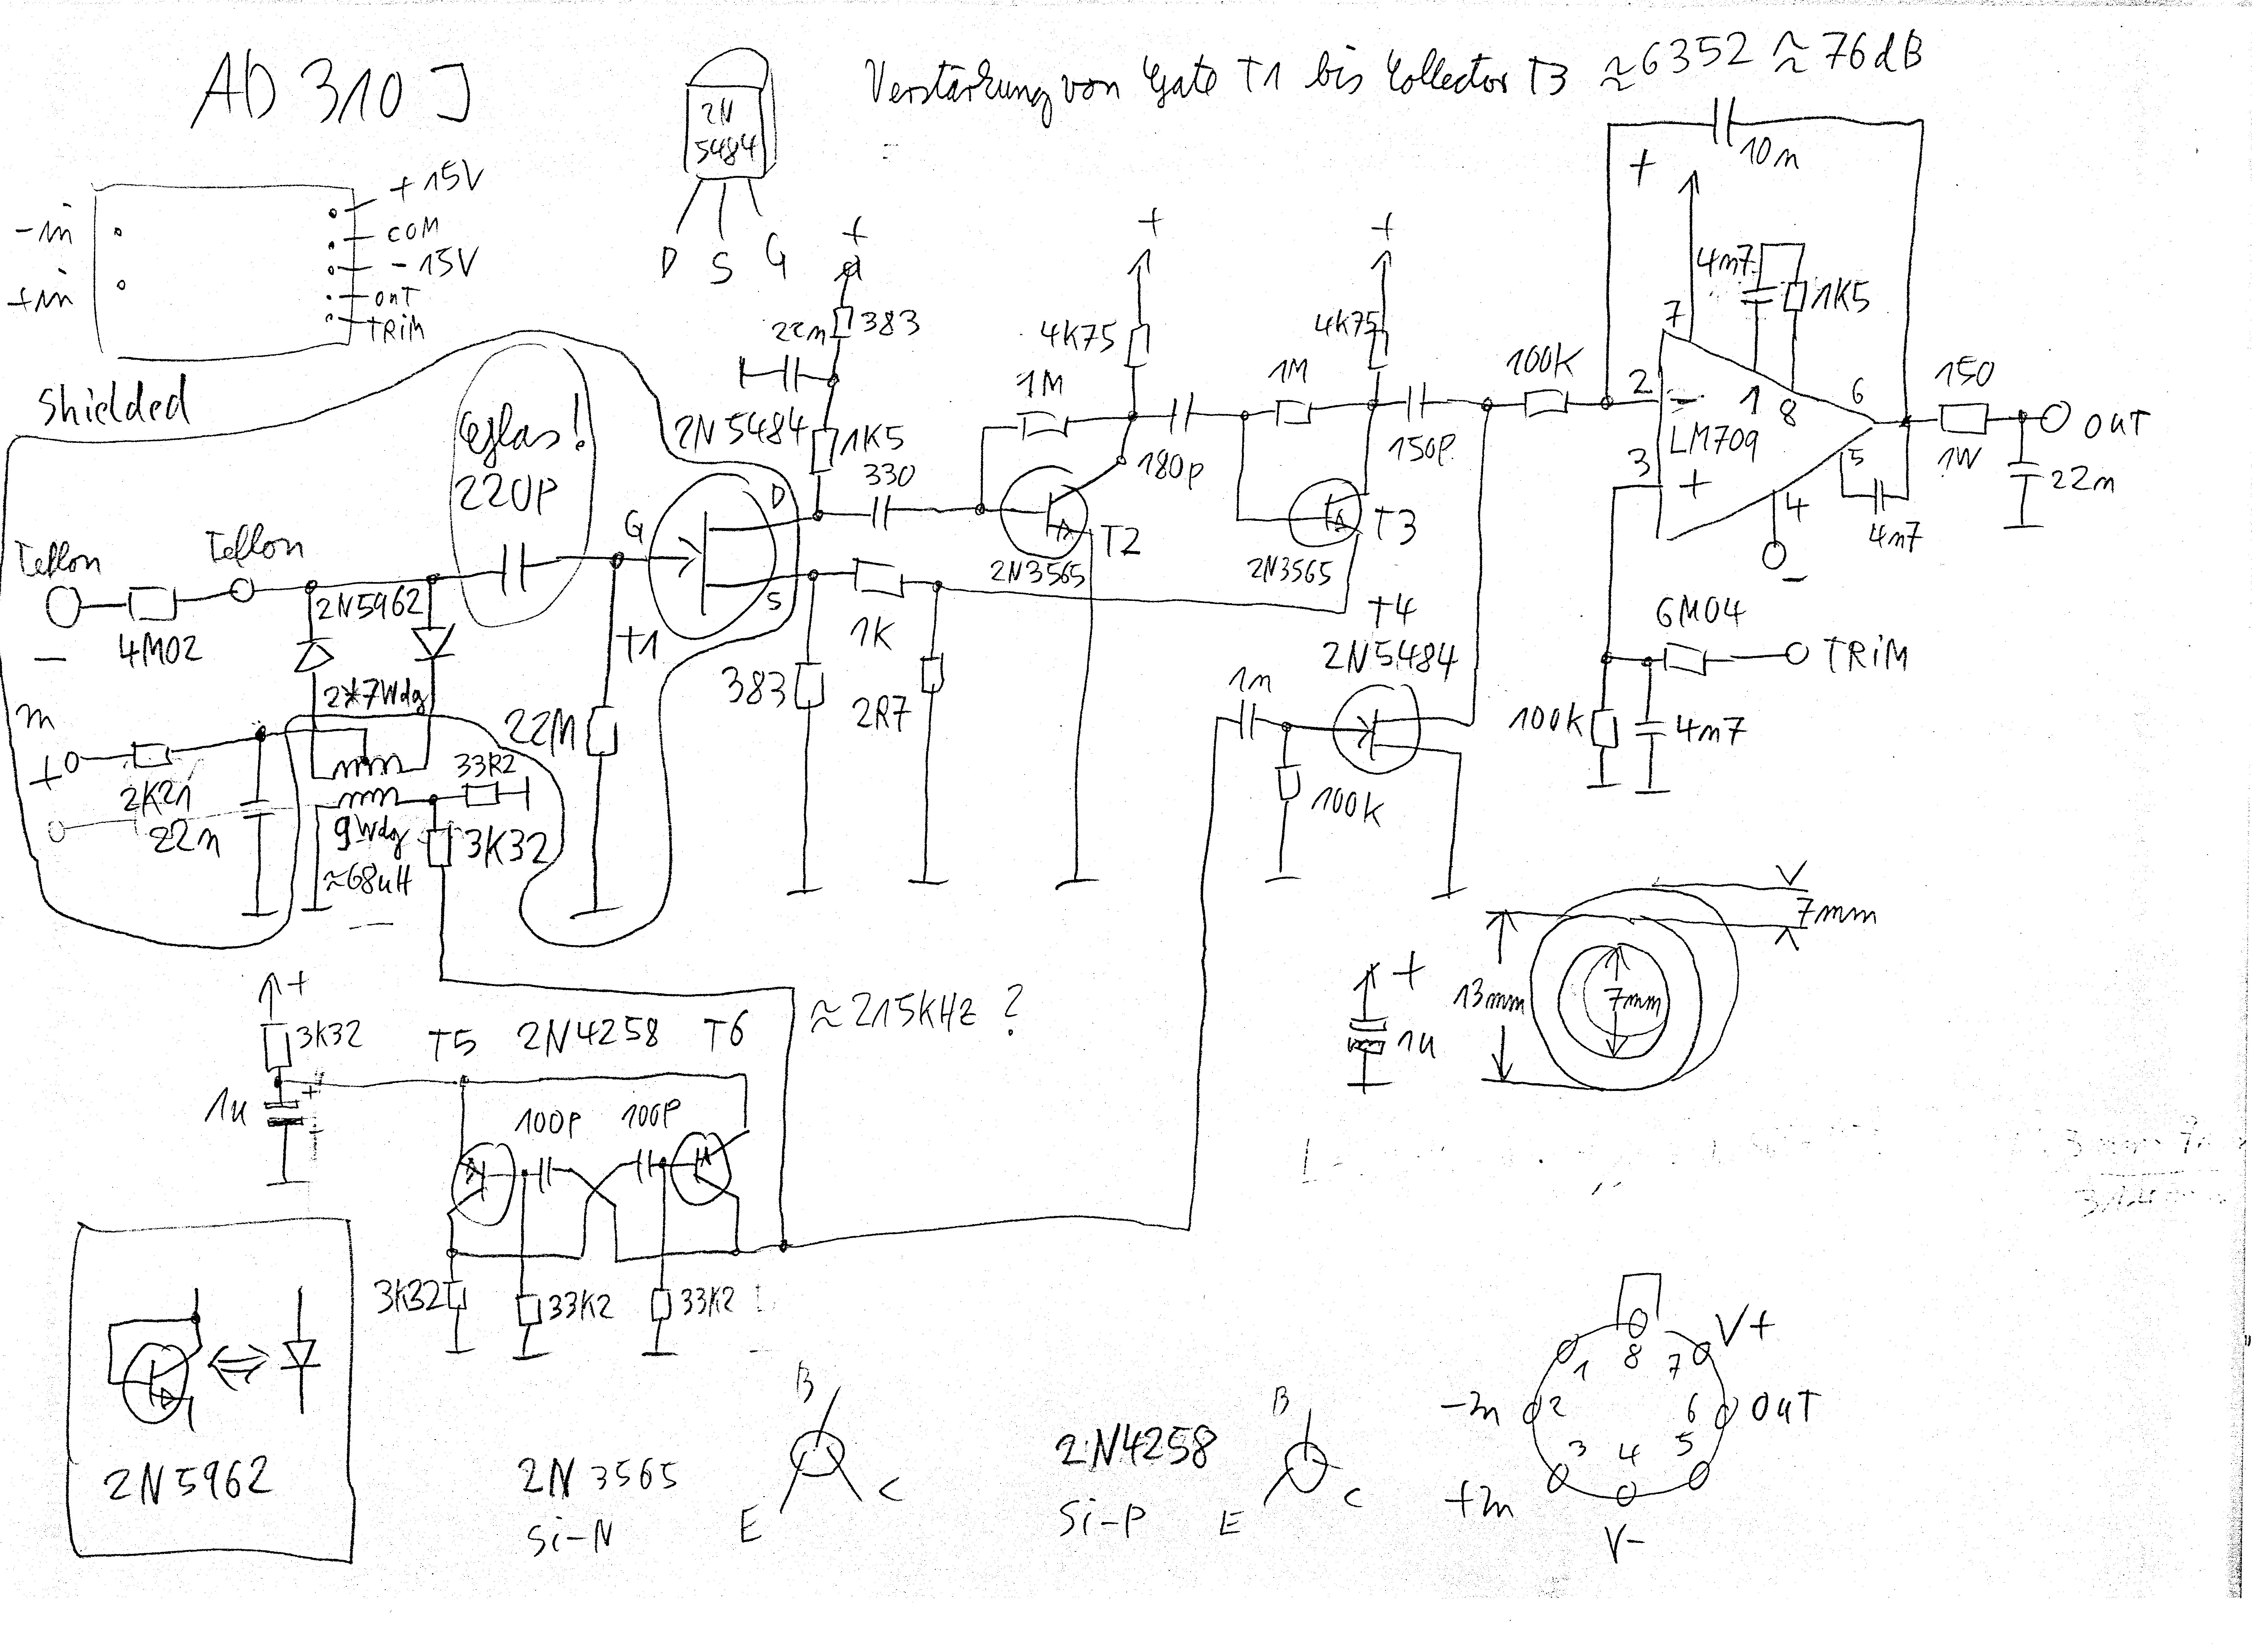 AD 310 J
2N
5484
D S G
Verstärkung von Gate T1 bis Collector T3 ≈6352 ≈76dB
+15V
COM
-15V
OUT
TRIM
-in
+in
Shielded
Glas!
220P
Teflon
Teflon
4M02
-
in
+
2K21
22n
2N5962
2*7Wdg
9Wdg
≈68uH
33R2
3K32
22M
G
D
S
T1
2N5484
+
383
22n
1K5
330
1K
383
2R7
+
4K75
1M
T2
2N3565
180p
+
4K75
1M
T3
2N3565
150P
100K
10n
+
4n7
1K5
7
2
-
1
8
6
LM709
3
+
5
4
-
4n7
150
1W
OUT
22n
6M04
TRIM
100K
4n7
T4
2N5484
1n
100K
≈215KHz ?
+
3K32
1u
+
T5 2N4258 T6
100P 100P
3K32
33K2
33K2
+
1u
13mm
7mm
7mm
2N5962
2N3565
Si-N
B
E
C
2N4258
Si-P
B
E
C
V+
1 8 7
-In 2 6 OUT
3 4 5
+In
V-